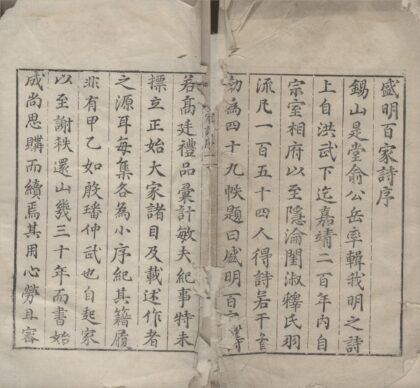 盛明百家詩序
錫山是堂俞公岳率輯我明之詩
上自洪武下迄嘉靖二百年內自
宗室相府以至隱淪閨淑釋氏羽
流凡一百五十四人得詩若干首
為四十九帙題曰盛明百家詩
若高廷禮品彙計敏夫紀事特未
標立正始大家諸目及載述作者
之源耳每集各為小序紀其籍履
非有甲乙如殷璠仲武也自起家
以至謝秩還山幾三十年而書始
成尚思購而續焉其用心勞且審